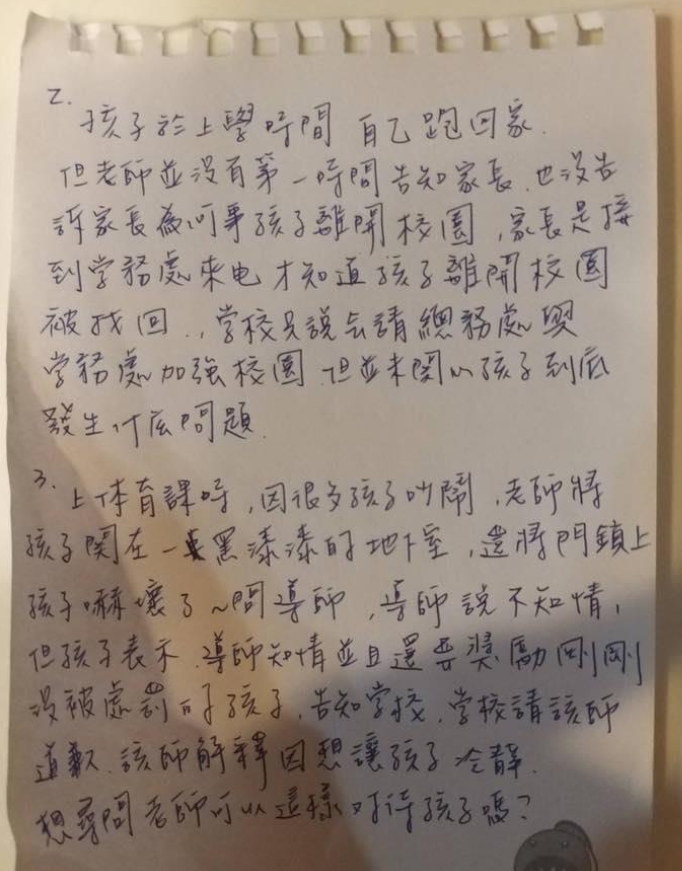 2.
孩子於上學時間 自己跑回家.
但老師並沒有第一時間告知家長.也沒告
訴家長為何事孩子離開校園,家長是接
到学務處來电才知道孩子離開校園
被找回.,学校只說会請總務處與
学務處加強校園.但並未関心孩子到底
發生什麼問題.
3.
上体育課時,因很多孩子吵鬧,老師將
孩子関在一黑漆漆的地下室,還將門鎖上
孩子嚇壞了~問導師,導師說不知情,
但孩子表示.導師知情並且還要獎勵剛剛
沒被處罰的孩子.告知学校.学校請該師
道歉.該師解釋因想讓孩子冷靜.
想尋問老師可以這樣对待孩子嗎?